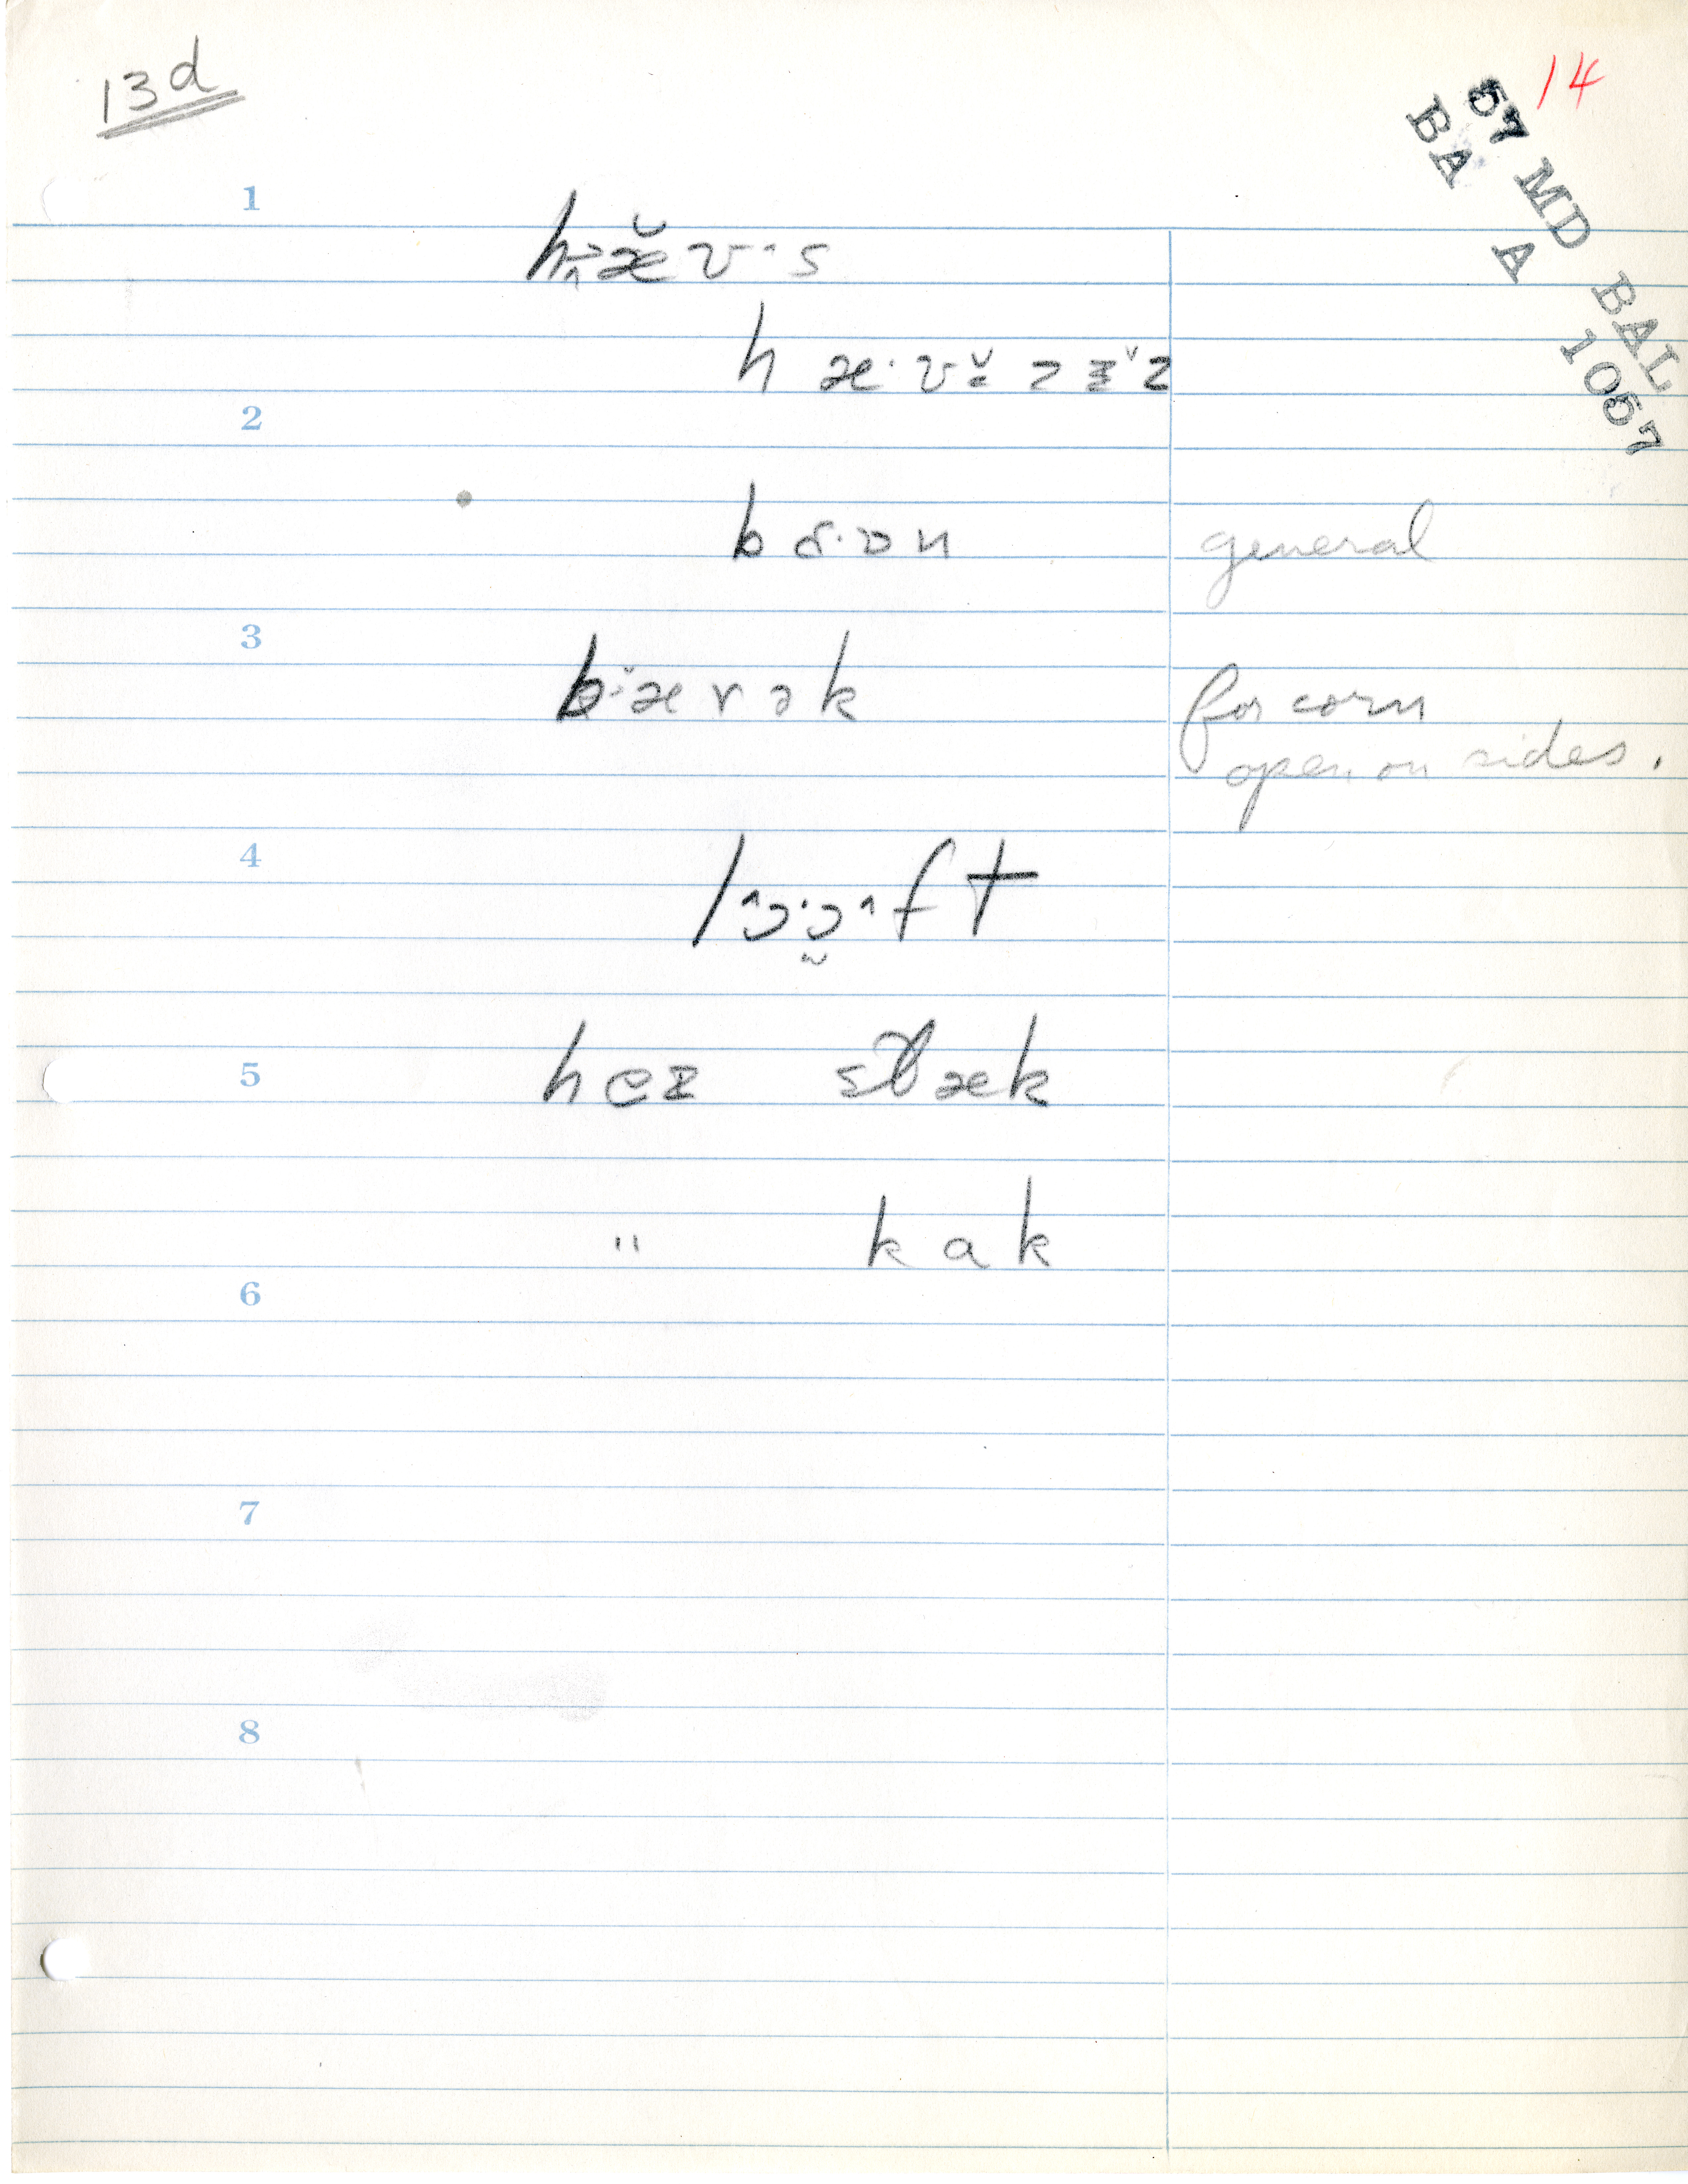 13d
14
57 MD BAL
BA A 1057
1
hæʊ·s
hæ·ʊzɪz
2
bɑ·ɒn general
3
bærək for corn
open on sides.
4
lɔ·ɔft
5
heɪ stæk
" kak
6
7
8